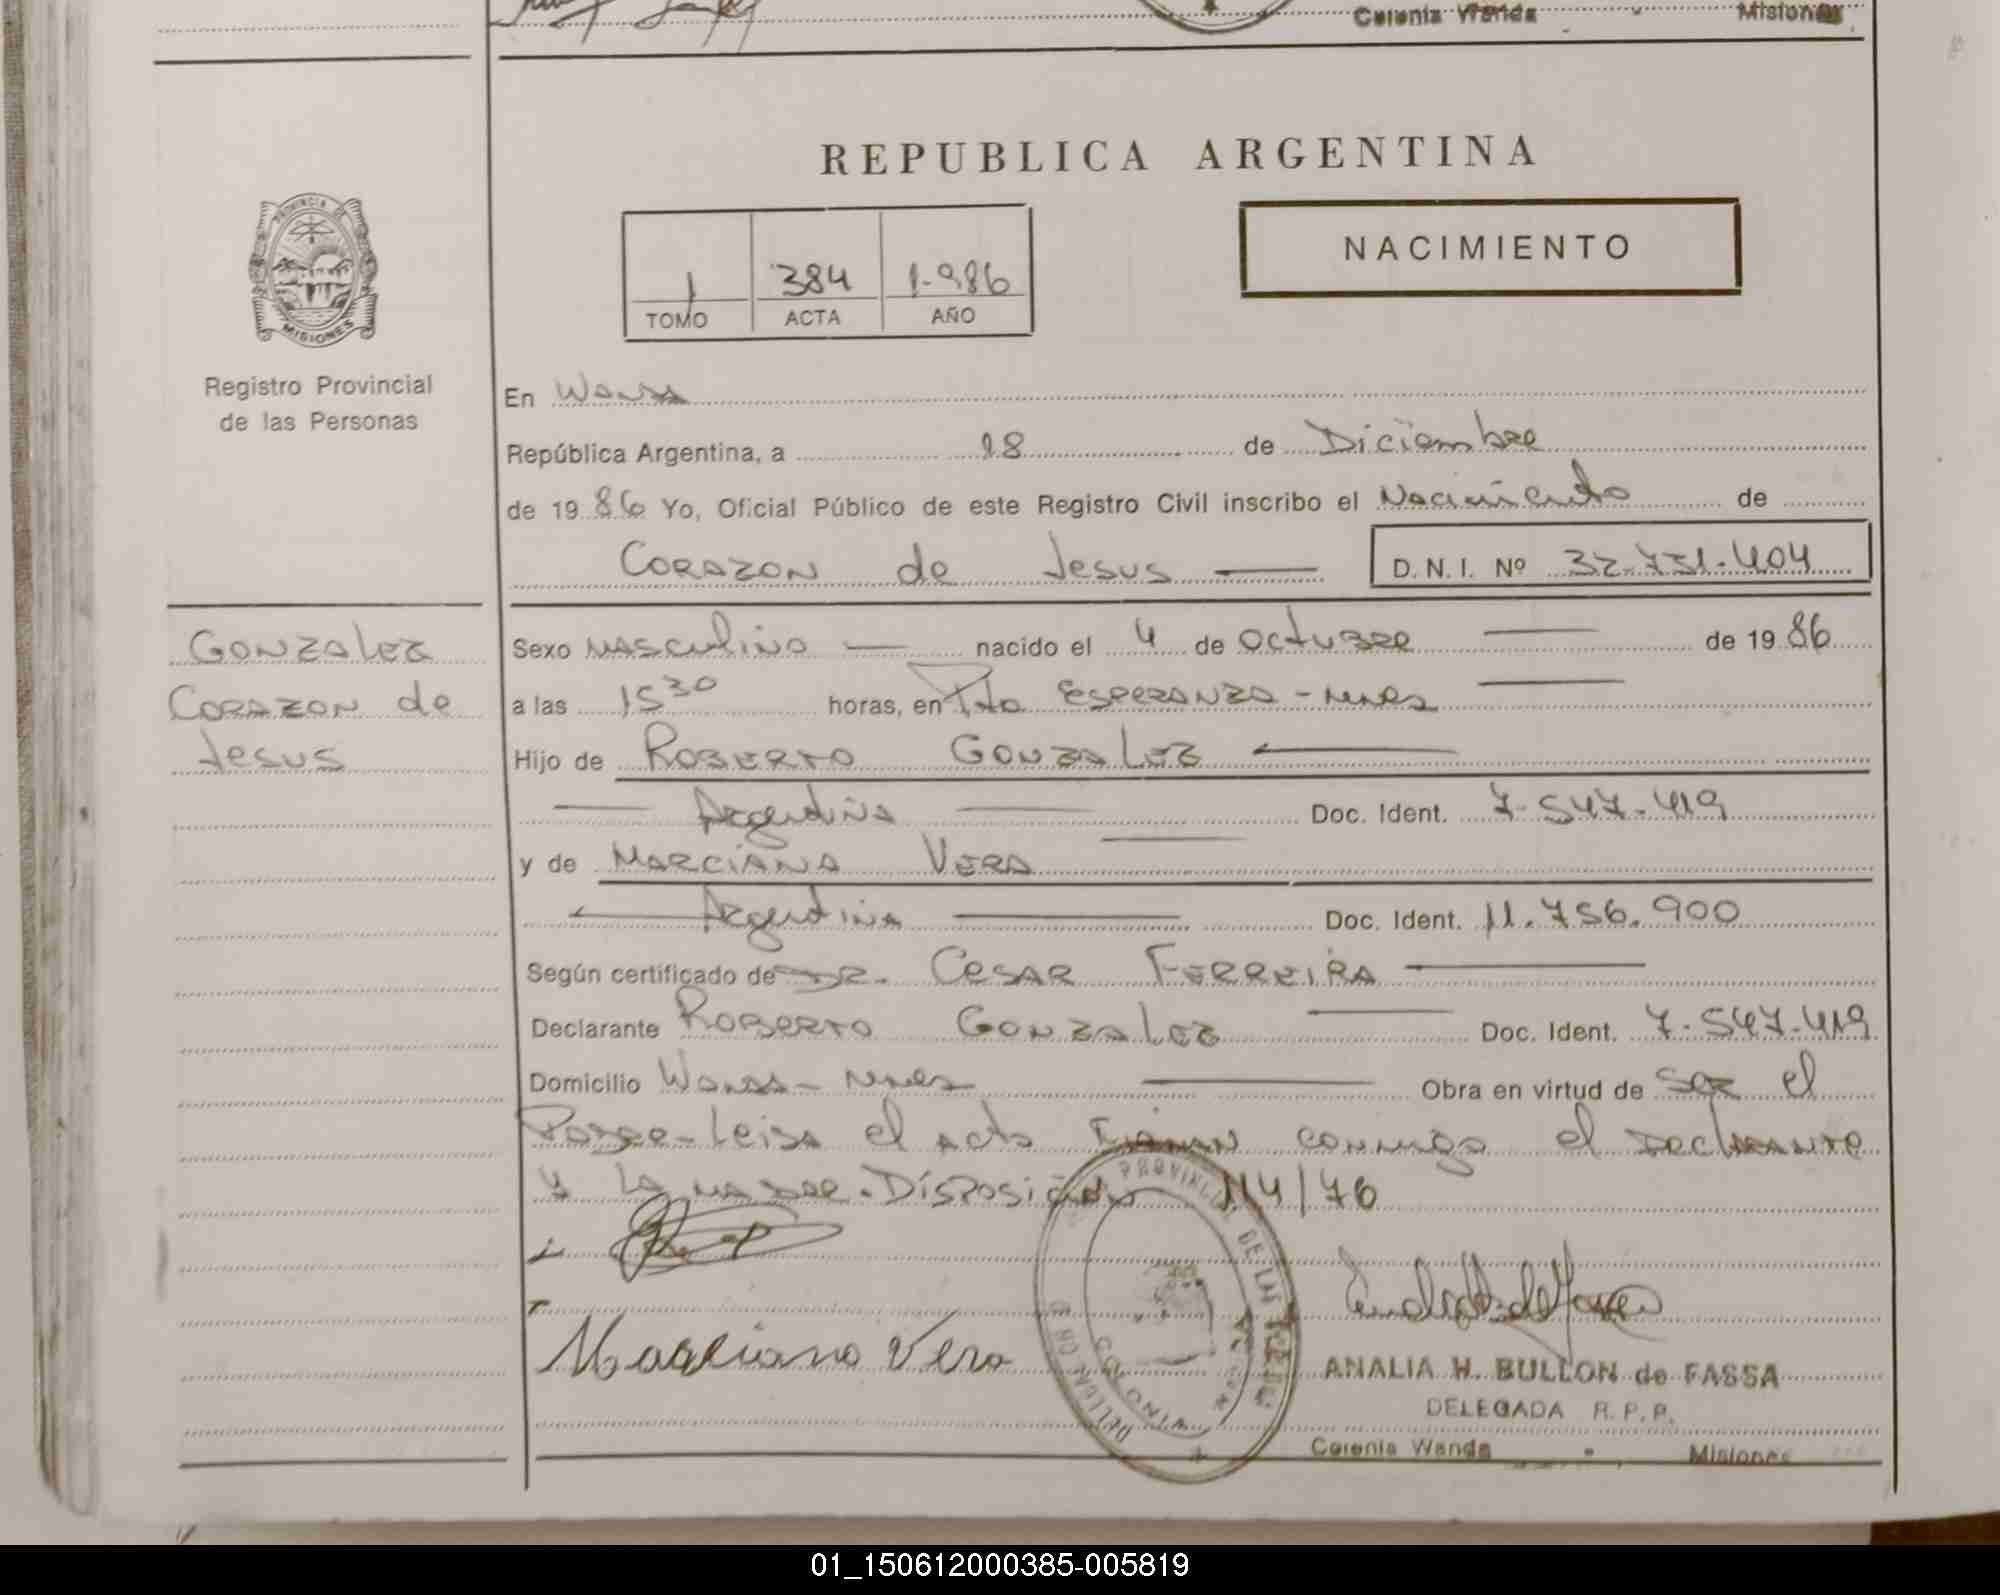 Colonia Wanda - Misiones
REPUBLICA ARGENTINA
NACIMIENTO
1 384 1.986
TOMO ACTA AÑO
PROVINCIA DE
MISIONES
Registro Provincial
de las Personas
En Wanda
República Argentina, a 18 de Diciembre
de 1986 Yo, Oficial Público de este Registro Civil inscribo el Nacimiento de
CORAZON de Jesus D.N.I. Nº 32.731.404
Gonzalez
Corazon de
Jesus
Sexo masculino nacido el 4 de octubre de 1986
a las 15 30 horas, en Pto Esperanza - mnes
Hijo de ROBERTO GONZALEZ
Argentina Doc. Ident. 7.547.419
y de MARCIANA VERA
Argentina Doc. Ident. 11.756.900
Según certificado de DR. CESAR FERREIRA
Declarante ROBERTO GONZALEZ Doc. Ident. 7.547.419
Domicilio Wanda - mnes Obra en virtud de ser el
Padre - Leida el acta Firman conmigo el declarante
y la madre. Disposición 114/76
Marciana Vera
PROVINCIAL DE LAS
ANALIA H. BULLON de FASSA
DELEGADA R.P.P.
Colonia Wanda - Misiones
01_150612000385-005819